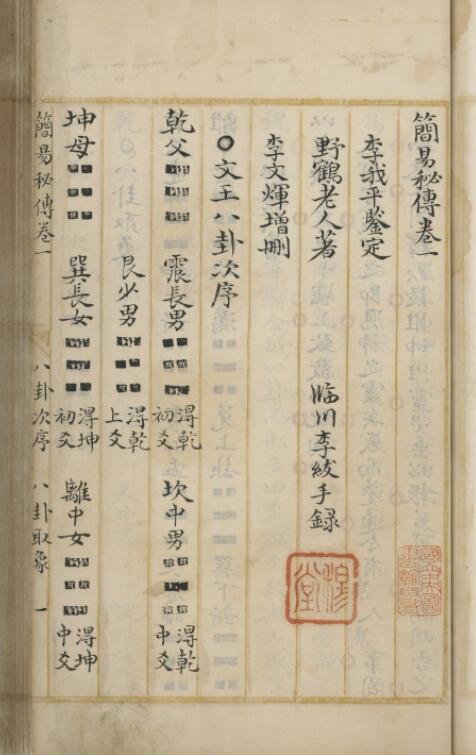 簡易秘傳卷一
李我平鑒定
野鶴老人著　临川李紱手録
穆堂
李文煇增刪
〇文王八卦次序
乾父　震長男　淂乾初爻　坎中男　淂乾中爻
艮少男　淂乾上爻
坤母　巽長女　淂坤初爻　離中女　淂坤中爻
簡易秘傳卷一　八卦次序　八卦取象　一